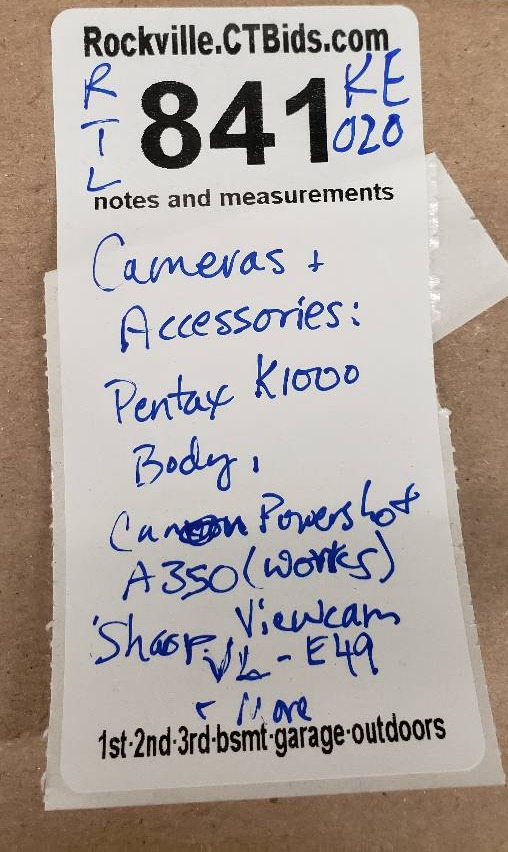 Rockville.CTBids.com
RTL 841 KE 020
notes and measurements
Cameras +
Accessories:
Pentax K1000
Body,
Canon Powershot
A350 (works)
Sharp Viewcam
VL-E49
+ More
1st·2nd·3rd·bsmt·garage·outdoors